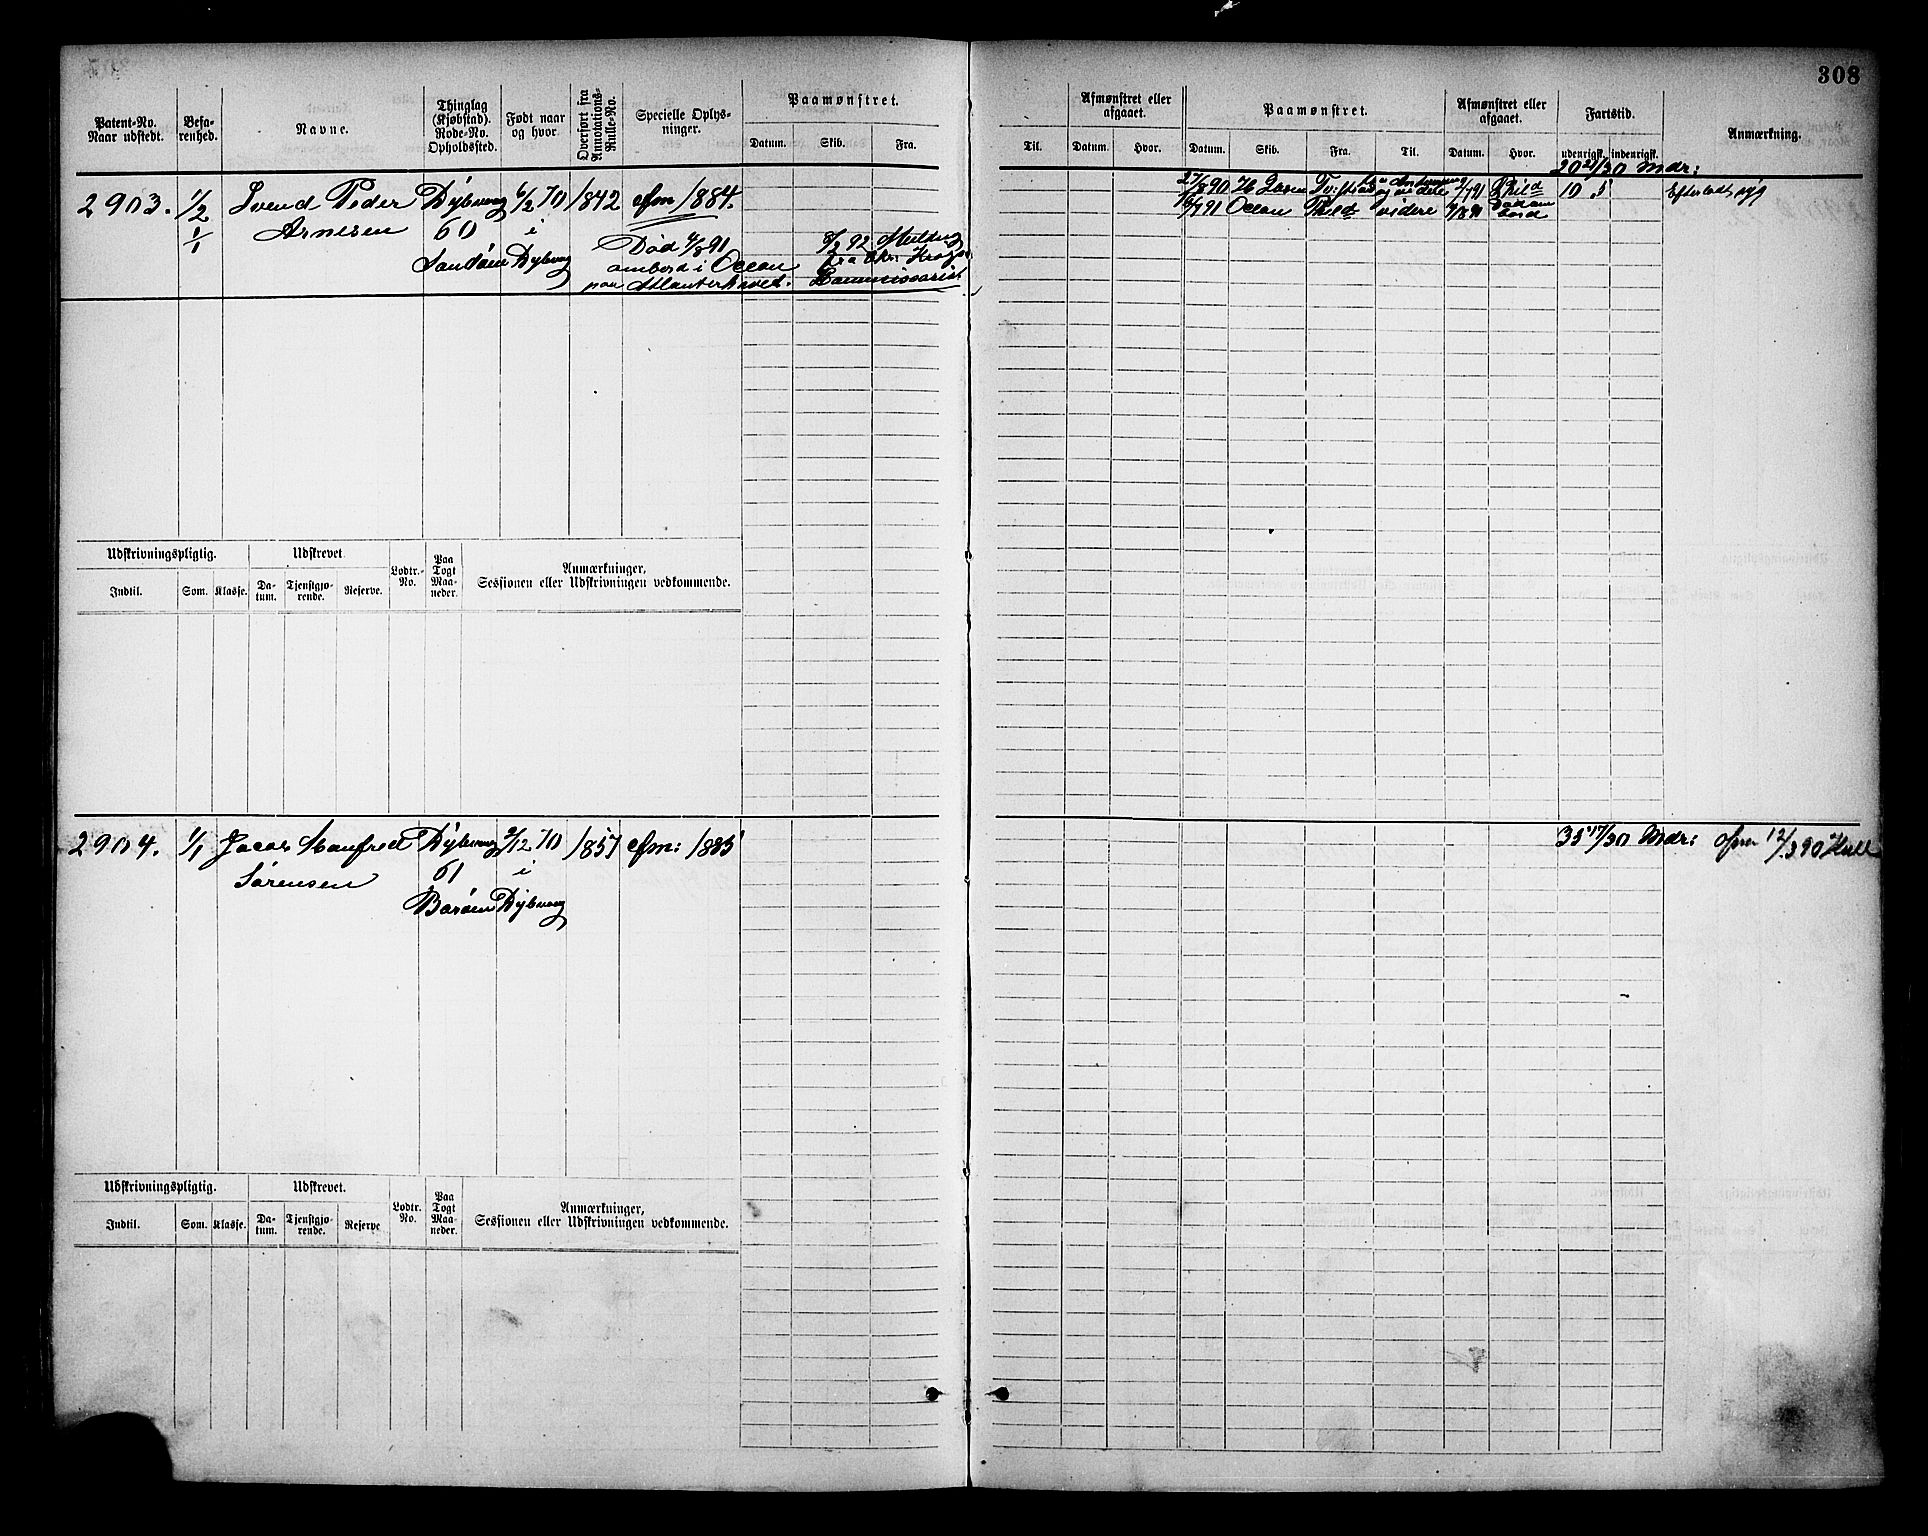 308
Patent-No. Naar udstedt.
Befarenhed.
Navne.
Thinglag (Kjøbstad). Rode-No. Opholdssted.
Født naar og hvor
Overført fra Annotations-Rulle-No.
Specielle Oplysninger.
Paamønstret.
Datum. Skib. Fra.
Til.
Afmønstret eller afgaaet.
Datum. Hvor.
Paamønstret.
Datum. Skib. Fra. Til.
Afmønstret eller afgaaet.
Datum. Hvor.
Fartstid.
udenrigsk. indenrigsk.
Anmærkning.
20 21/30 Mdr:
2903. 1/2 Svend Peder Dybvaag 6/2 70 1842 Ofm 1884.
1/1 Arnesen 60 i
Sandøen Dybvaag
Død 4/8 91
ombord i Ocean
paa Atlanterhavet.
8/2 92 Melding
fra Chr. Kragerø
Commissariat
27/8 90
videre 7/7 91 Phild 10 5
16/7 91 Ocean Phild videre 4/8 91 Død om bord
Udskrivningspligtig.
Indtil. Som. Klasse.
Udskrevet.
Datum. Tjenstgjørende. Reserve.
Lodtr.-No.
Paa Togt Maaneder.
Anmærkninger,
Sessionen eller Udskrivningen vedkommende.
2904. 1/1 Jacob Manfred Dybvaag 2/12 70 1857 Ofm: 1885
Sørensen 61 i
Borøen Dybvaag
35 17/30 Mdr: 12/3 90 Hull
Udskrivningspligtig.
Indtil. Som. Klasse.
Udskrevet.
Datum. Tjenstgjørende. Reserve
Lodtr. No.
Paa Togt Maaneder.
Anmærkninger,
Sessionen eller Udskrivningen vedkommende.